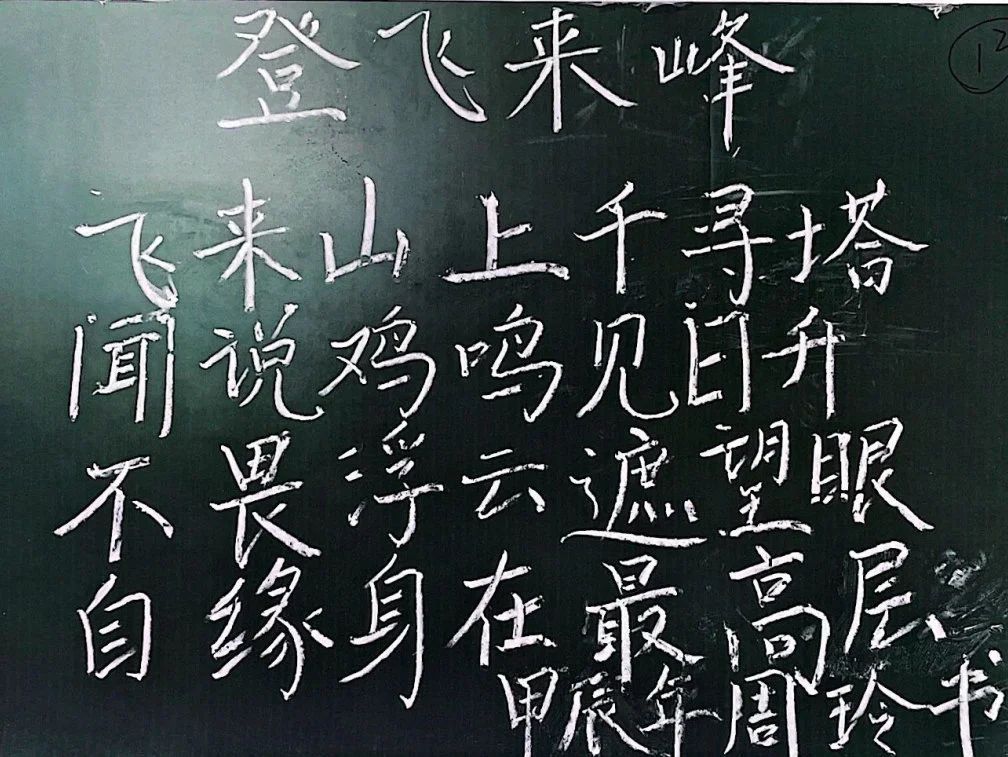 登飞来峰
飞来山上千寻塔
闻说鸡鸣见日升
不畏浮云遮望眼
自缘身在最高层
甲辰年周玲书